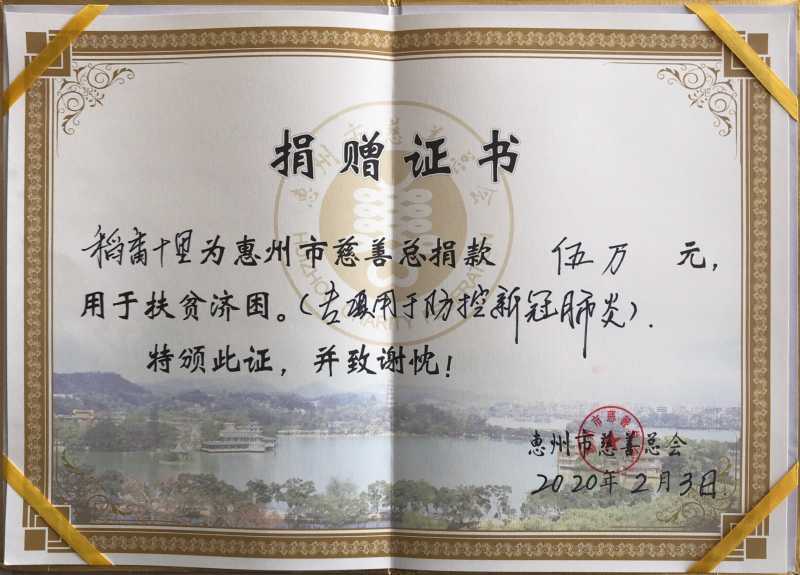 捐赠证书
稻香十里为惠州市慈善总捐款 伍万 元,
用于扶贫济困。(专项用于防控新冠肺炎).
特颁此证，并致谢忱!
惠州市慈善总会
2020年2月3日